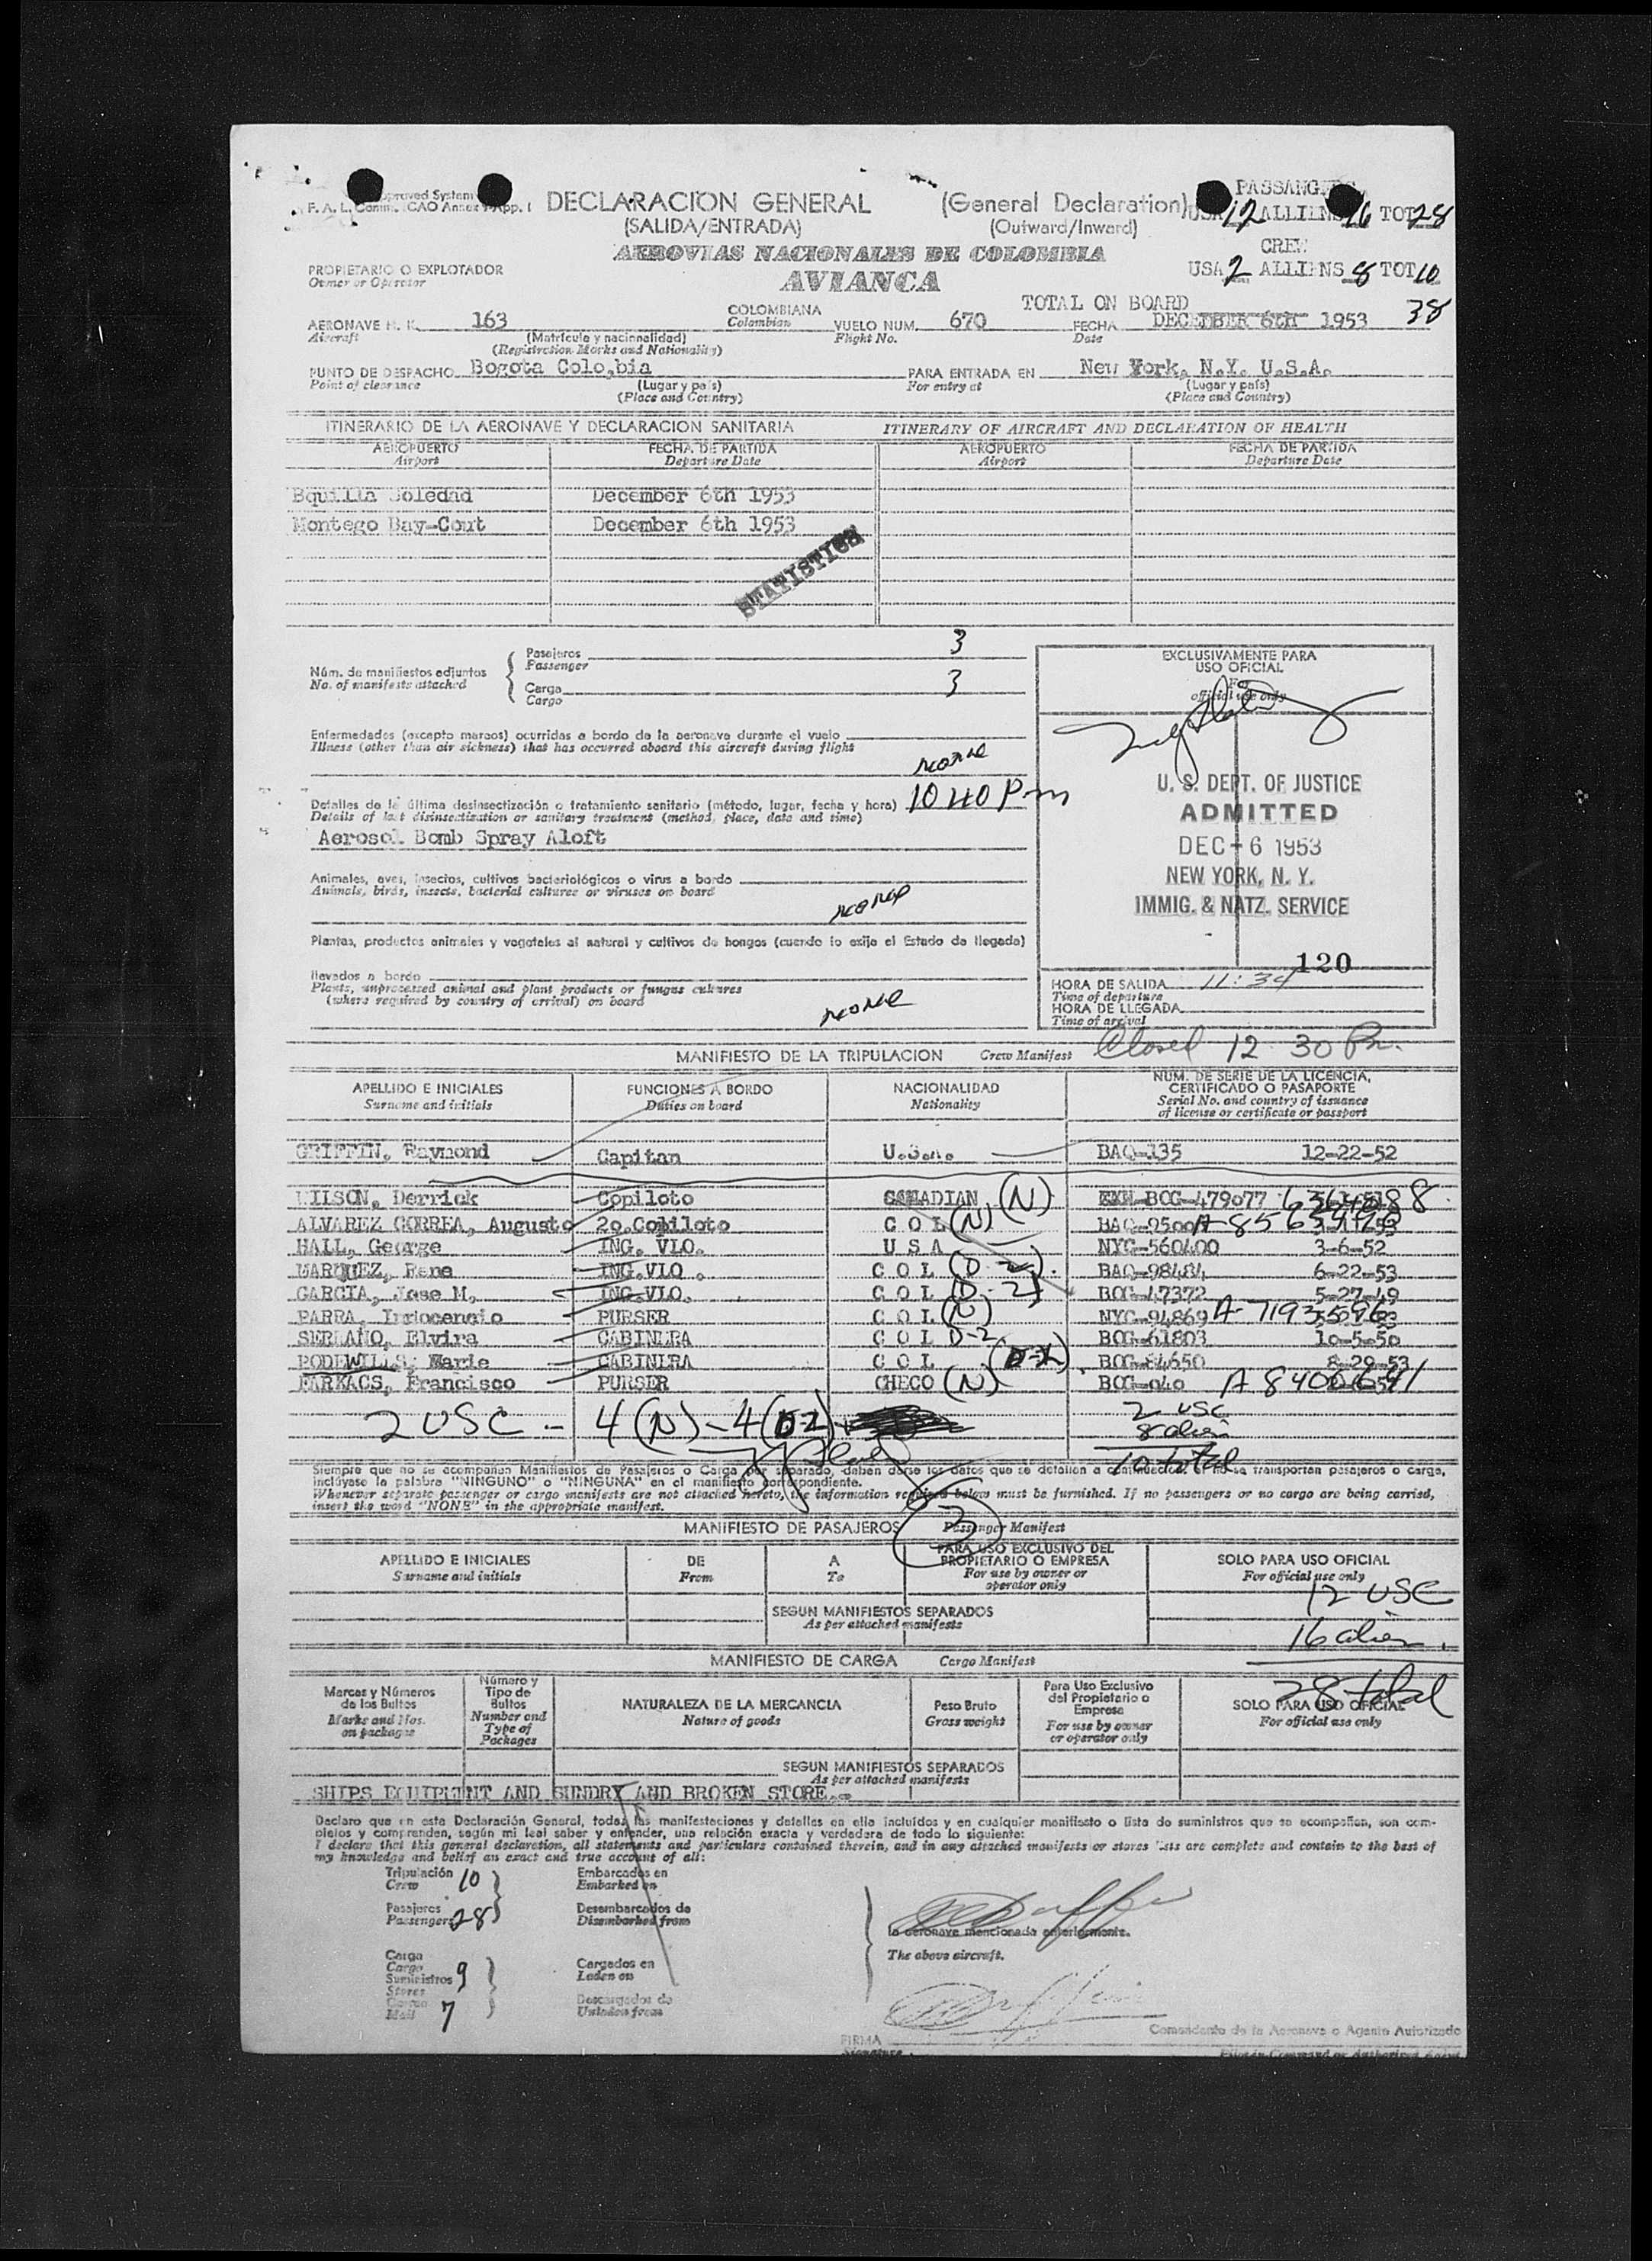 PASSANG
F. A. L. Comm. ICAO Annex 9 App. I DECLARACION GENERAL (General Declaration) USA 12 ALLIENS 16 TOT 28
(SALIDA/ENTRADA) (Outward/Inward)
CREW
AEROVIAS NACIONALES DE COLOMBIA
USA 2 ALLIENS 8 TOT 10
PROPIETARIO O EXPLOTADOR
Owner or Operator
AVIANCA
TOTAL ON BOARD 38
AERONAVE H. K. 163 COLOMBIANA VUELO NUM. 670 FECHA DECEMBER 6th 1953
Aircraft (Matrícula y nacionalidad) Colombian Flight No. Date
(Registration Marks and Nationality)
PUNTO DE DESPACHO Bogota Colo,bia PARA ENTRADA EN New York, N.Y. U.S.A.
Point of clearance (Lugar y país) For entry at (Lugar y país)
(Place and Country) (Place and Country)
ITINERARIO DE LA AERONAVE Y DECLARACION SANITARIA ITINERARY OF AIRCRAFT AND DECLARATION OF HEALTH
AEROPUERTO FECHA DE PARTIDA AEROPUERTO FECHA DE PARTIDA
Airport Departure Date Airport Departure Date
Bquilla Soledad December 6th 1953
Montego Bay-Cout December 6th 1953
STATISTICS
Núm. de manifiestos adjuntos
No. of manifests attached
Pasajeros 3
Passenger
Carga 3
Cargo
EXCLUSIVAMENTE PARA
USO OFICIAL
For
official use only
Enfermedades (excepto mareos) ocurridas a bordo de la aeronave durante el vuelo
Illness (other than air sickness) that has occurred aboard this aircraft during flight
none
Detalles de la última desinsectización o tratamiento sanitario (método, lugar, fecha y hora) 10 40 Pm
Details of last disinsectization or sanitary treatment (method, place, date and time)
Aerosol Bomb Spray Aloft
U. S. DEPT. OF JUSTICE
ADMITTED
DEC - 6 1953
NEW YORK, N. Y.
IMMIG. & NATZ. SERVICE
120
Animales, aves, insectos, cultivos bacteriológicos o virus a bordo
Animals, birds, insects, bacterial cultures or viruses on board
none
Plantas, productos animales y vegetales al natural y cultivos de hongos (cuando lo exija el Estado de llegada)
llevados a bordo
Plants, unprocessed animal and plant products or fungus cultures
(where required by country of arrival) on board
none
HORA DE SALIDA 11:34
Time of departure
HORA DE LLEGADA
Time of arrival
Closed 12 30 Pm.
MANIFIESTO DE LA TRIPULACION Crew Manifest
APELLIDO E INICIALES FUNCIONES A BORDO NACIONALIDAD NUM. DE SERIE DE LA LICENCIA,
CERTIFICADO O PASAPORTE
Surname and initials Duties on board Nationality Serial No. and country of issuance
of license or certificate or passport
GRIFFIN, Raymond Capitan U.S.A. BAQ-135 12-22-52
WILSON, Derrick Copiloto CANADIAN (N) BOG-479077
ALVAREZ CORREA, Augusto 2o.Copiloto C O L (N)
HALL, George ING. VLO. U S A NYC-560400 3-6-52
MARQUEZ, Rene ING.VLO . C O L (D-2). BAQ-98484 6-22-53
GARCIA, Jose M, ING.VLO. C O L (D-2) BOG-47372 5-27-49
PARRA, Indocencio PURSER C O L (N) NYC-94869 A-7193596
SERRANO, Elvira CABINERA C O L D-2 BOG-61803 10-5-50
RODEWILLS, Marie CABINERA C O L (D-2) BOG-84650 8-29-53
FARKACS, Francisco PURSER CHECO (N) BOG-040 A 8400641
2 USC - 4 (N) - 4 (D-2)
2 USC
8 alien
10 total
Siempre que no se acompañen Manifiestos de Pasajeros o Carga por separado, deben darse los datos que se detallan a continuación. Si no se transportan pasajeros o carga,
inclúyase la palabra "NINGUNO" o "NINGUNA" en el manifiesto correspondiente.
Whenever separate passenger or cargo manifests are not attached hereto, the information required below must be furnished. If no passengers or no cargo are being carried,
insert the word "NONE" in the appropriate manifest.
MANIFIESTO DE PASAJEROS Passenger Manifest
3
APELLIDO E INICIALES DE A PARA USO EXCLUSIVO DEL
PROPIETARIO O EMPRESA SOLO PARA USO OFICIAL
Surname and initials From To For use by owner or
operator only For official use only
12 USC
SEGUN MANIFIESTOS SEPARADOS
As per attached manifests
16 alien
28 total
MANIFIESTO DE CARGA Cargo Manifest
Marcas y Números
de los Bultos
Marks and Nos.
on packages
Número y
Tipo de
Bultos
Number and
Type of
Packages
NATURALEZA DE LA MERCANCIA
Nature of goods
Peso Bruto
Gross weight
Para Uso Exclusivo
del Propietario o
Empresa
For use by owner
or operator only
SOLO PARA USO OFICIAL
For official use only
SEGUN MANIFIESTOS SEPARADOS
As per attached manifests
SHIPS EQUIPMENT AND SUNDRY AND BROKEN STORE.
Declaro que en esta Declaración General, todas las manifestaciones y detalles en ella incluídos y en cualquier manifiesto o lista de suministros que se acompañen, son com-
pletos y comprenden, según mi leal saber y entender, una relación exacta y verdadera de todo lo siguiente:
I declare that this general declaration, all statements and particulars contained therein, and in any attached manifests or stores lists are complete and contain to the best of
my knowledge and belief an exact and true account of all:
Tripulación 10
Crew
Embarcados en
Embarked on
Pasajeros 28
Passengers
Desembarcados de
Disembarked from
la aeronave mencionada anteriormente.
The above aircraft.
Carga
Cargo
Suministros 9
Stores
Correo 7
Mail
Cargados en
Laden on
Descargados de
Unladen from
FIRMA
Signature
Comandante de la Aeronave o Agente Autorizado